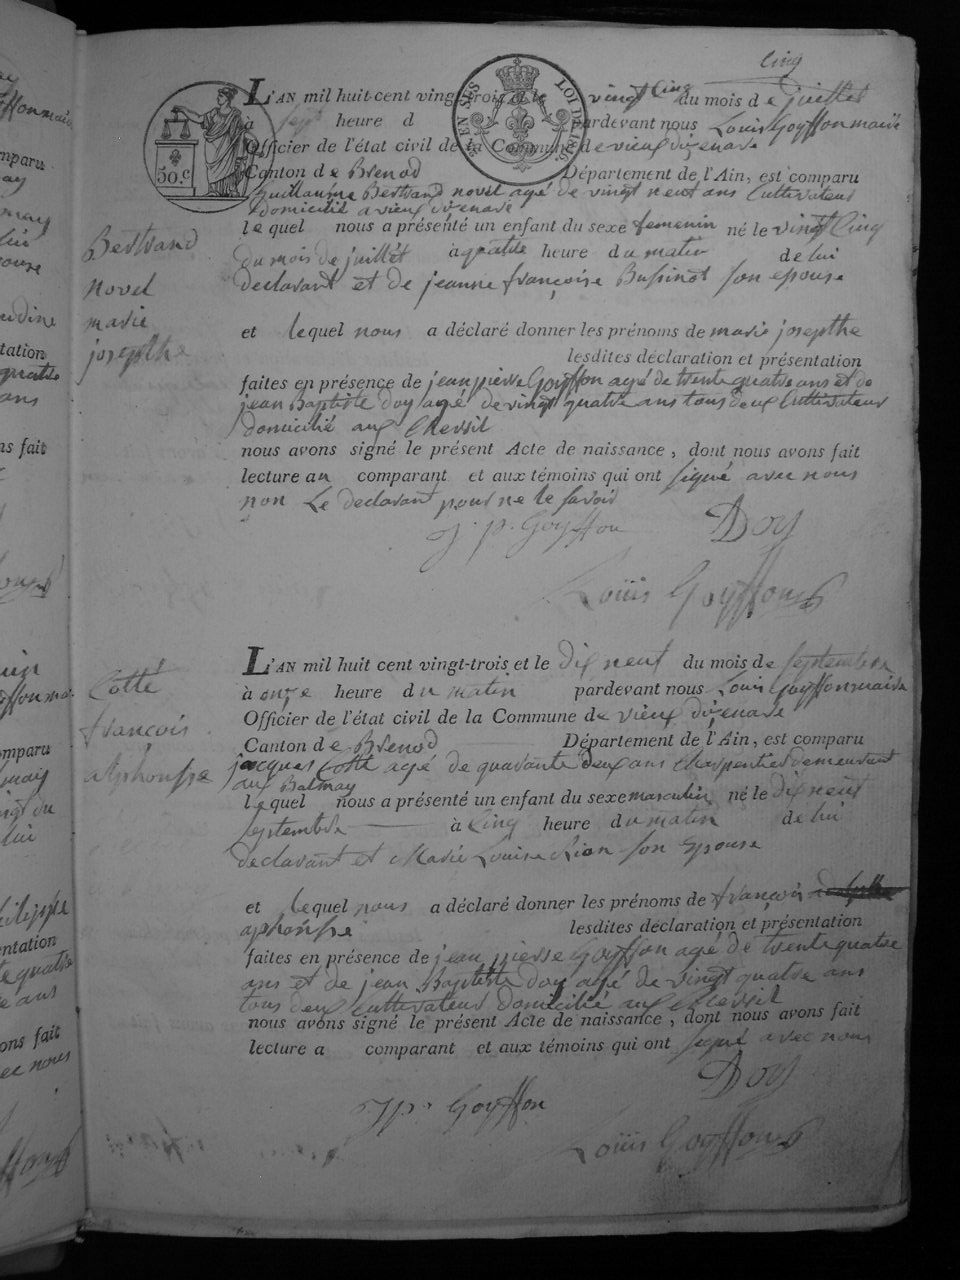 cinq
L'AN mil huit-cent vingt-trois et le vingt cinq du mois de juillet
a sept heure d pardevant nous Louis Goyffon maire
Officier de l'état civil de la Commune de vieux dizenave
Canton de Brenod Département de l'Ain, est comparu
Guillaume Bertrand novel agé de vingt neuf ans Cultivateur
domicilié a vieux dizenave
lequel nous a présenté un enfant du sexe femenin né le vingt Cinq
du mois de juillet à quatre heure du matin de lui
declarant et de jeanne françoise Bussinot son epouse
et lequel nous a déclaré donner les prénoms de marie josepthe
lesdites déclaration et présentation
faites en présence de jean pierre Goyffon agé de trente quatre ans et de
jean Baptiste doy agé de vingt quatre ans tous deux Cultivateur
domicilié aux
nous avons signé le présent Acte de naissance, dont nous avons fait
lecture au comparant et aux témoins qui ont signé avec nous
non Le declarant pour ne le savoir
J. p. Goyffon Doy
Louis Goyffon
Bertrand
novel
marie
josepthe
L'AN mil huit cent vingt-trois et le dix neuf du mois de septembre
à onze heure du matin pardevant nous Louis Goyffon maire
Officier de l'état civil de la Commune de vieux dizenave
Canton de Brenod Département de l'Ain, est comparu
jacques Cotte agé de quarante deux ans Charpentier demeurant
aux Balmay
lequel nous a présenté un enfant du sexe masculin né le dix neuf
septembre à Cinq heure du matin de lui
declarant et Marie Louise son Epouse
et lequel nous a déclaré donner les prénoms de françois
aphonse lesdites déclaration et présentation
faites en présence de jean pierre Goyffon agé de trente quatre
ans et de jean Baptiste doy agé de vingt quatre ans
tous deux Cultivateur domicilié aux
nous avons signé le présent Acte de naissance, dont nous avons fait
lecture a comparant et aux témoins qui ont signé avec nous
Doy
J p. Goyffon
Louis Goyffon
Cotte
françois
alphonse
50.c
LOI DE 1816.